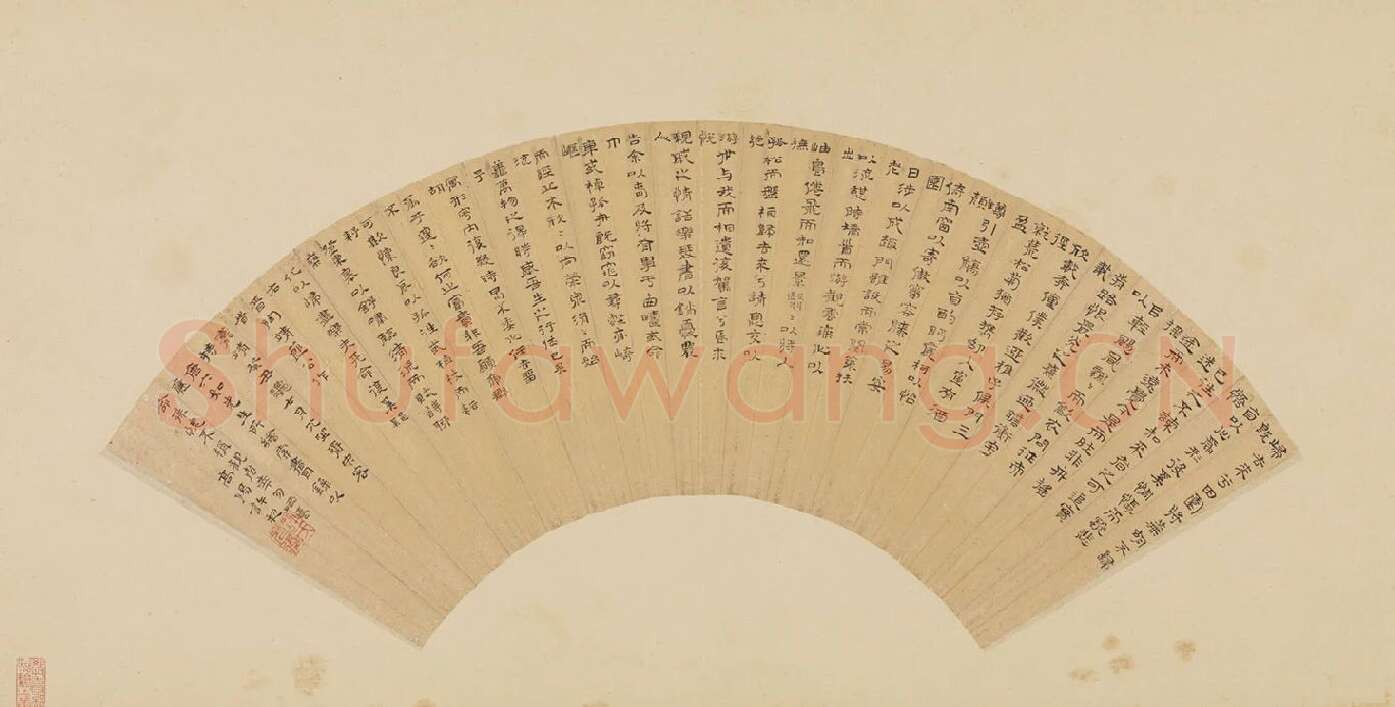 歸去來兮田園將蕪胡不歸
既自以心為形役奚惆悵而獨悲
悟
已往之不諫知來者之可追實
迷
途其未遠覺今是而昨非舟搖
搖
以輕颺風飄飄而吹衣問征夫以
前路恨晨光之熹微乃瞻衡宇
載
欣載奔僮僕歡迎稚子候門三
徑
就荒松菊猶存攜幼入室有酒
盈
樽引壺觴以自酌眄庭柯以怡
顏
倚南窗以寄傲審容膝之易安
園
日涉以成趣門雖設而常關策扶
老
以流憩時矯首而游觀雲無心以
出
岫鳥倦飛而知還景翳翳以將入
撫
孤松而盤桓歸去來兮請息交以
絕
游世與我而相遺復駕言兮焉求
悅
親戚之情話樂琴書以銷憂農
人
告余以春及將有事于西疇或命
巾
車或棹孤舟既窈窕以尋壑亦崎
嶇
而經丘木欣欣以向榮泉涓涓而始
流
善萬物之得時感吾生之行休已矣
乎
寓形宇內復幾時曷不委心任去留
胡
為乎遑遑欲何之富貴非吾願帝鄉
不
可期懷良辰以孤往或植杖而耘
耔
登東皋以舒嘯臨清流而賦詩聊
乘
化以歸盡樂夫天命復奚疑
Shufawang.CN